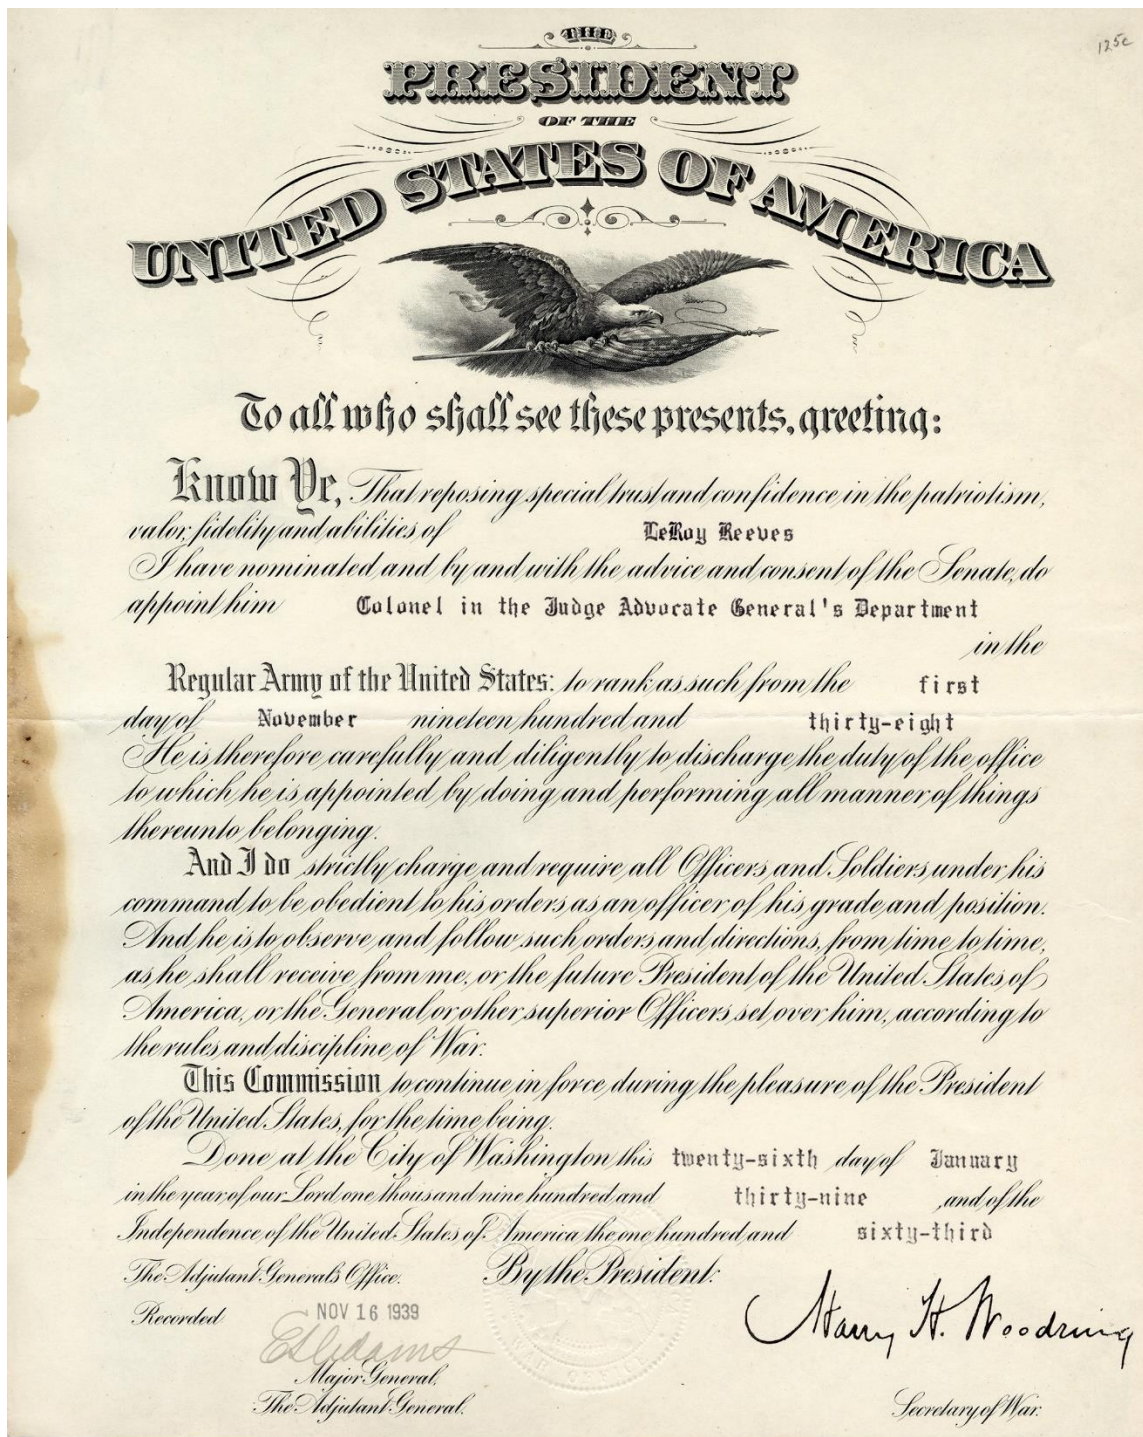 125c
THE
PRESIDENT
OF THE
UNITED STATES OF AMERICA
To all who shall see these presents, greeting:
Know Ye, That reposing special trust and confidence in the patriotism,
valor, fidelity and abilities of LeRoy Reeves
I have nominated and by and with the advice and consent of the Senate, do
appoint him Colonel in the Judge Advocate General's Department
in the
Regular Army of the United States: to rank as such from the first
day of November nineteen hundred and thirty-eight
He is therefore carefully and diligently to discharge the duty of the office
to which he is appointed by doing and performing all manner of things
thereunto belonging.
And I do strictly charge and require all Officers and Soldiers under his
command to be obedient to his orders as an officer of his grade and position.
And he is to observe and follow such orders and directions, from time to time,
as he shall receive from me, or the future President of the United States of
America, or the General or other superior Officers set over him, according to
the rules and discipline of War.
This Commission to continue in force during the pleasure of the President
of the United States, for the time being.
Done at the City of Washington this twenty-sixth day of January
in the year of our Lord one thousand nine hundred and thirty-nine , and of the
Independence of the United States of America the one hundred and sixty-third
The Adjutant General's Office. By the President:
Recorded NOV 16 1939
E S Adams
Harry H. Woodring
Major General,
The Adjutant General. Secretary of War.